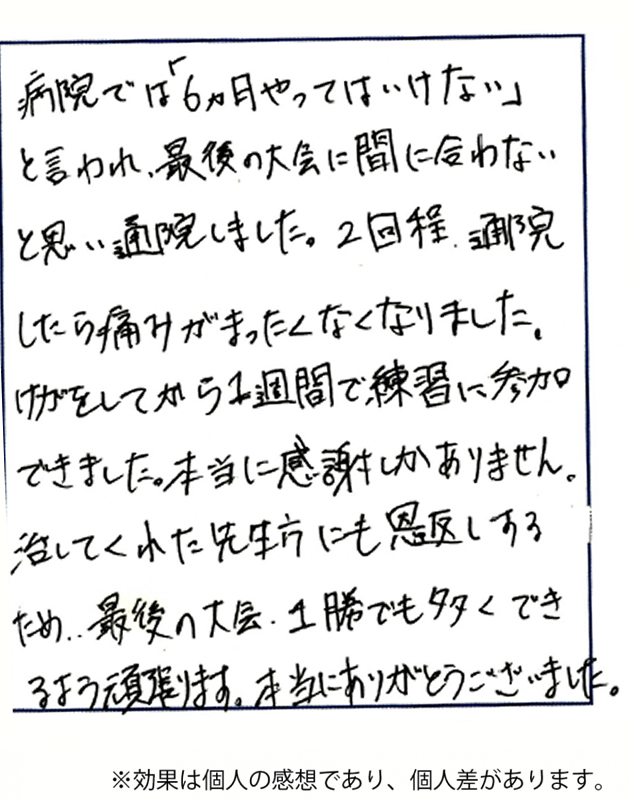 病院では「6ヵ月やってはいけない」
と言われ、最後の大会に間に合わない
と思い通院しました。2回程、通院
したら痛みがまったくなくなりました。
けがをしてから1週間で練習に参加
できました。本当に感謝しかありません。
治してくれた先生方にも恩返しする
ため、最後の大会、1勝でも多くでき
るよう頑張ります。本当にありがとうございました。
※効果は個人の感想であり、個人差があります。